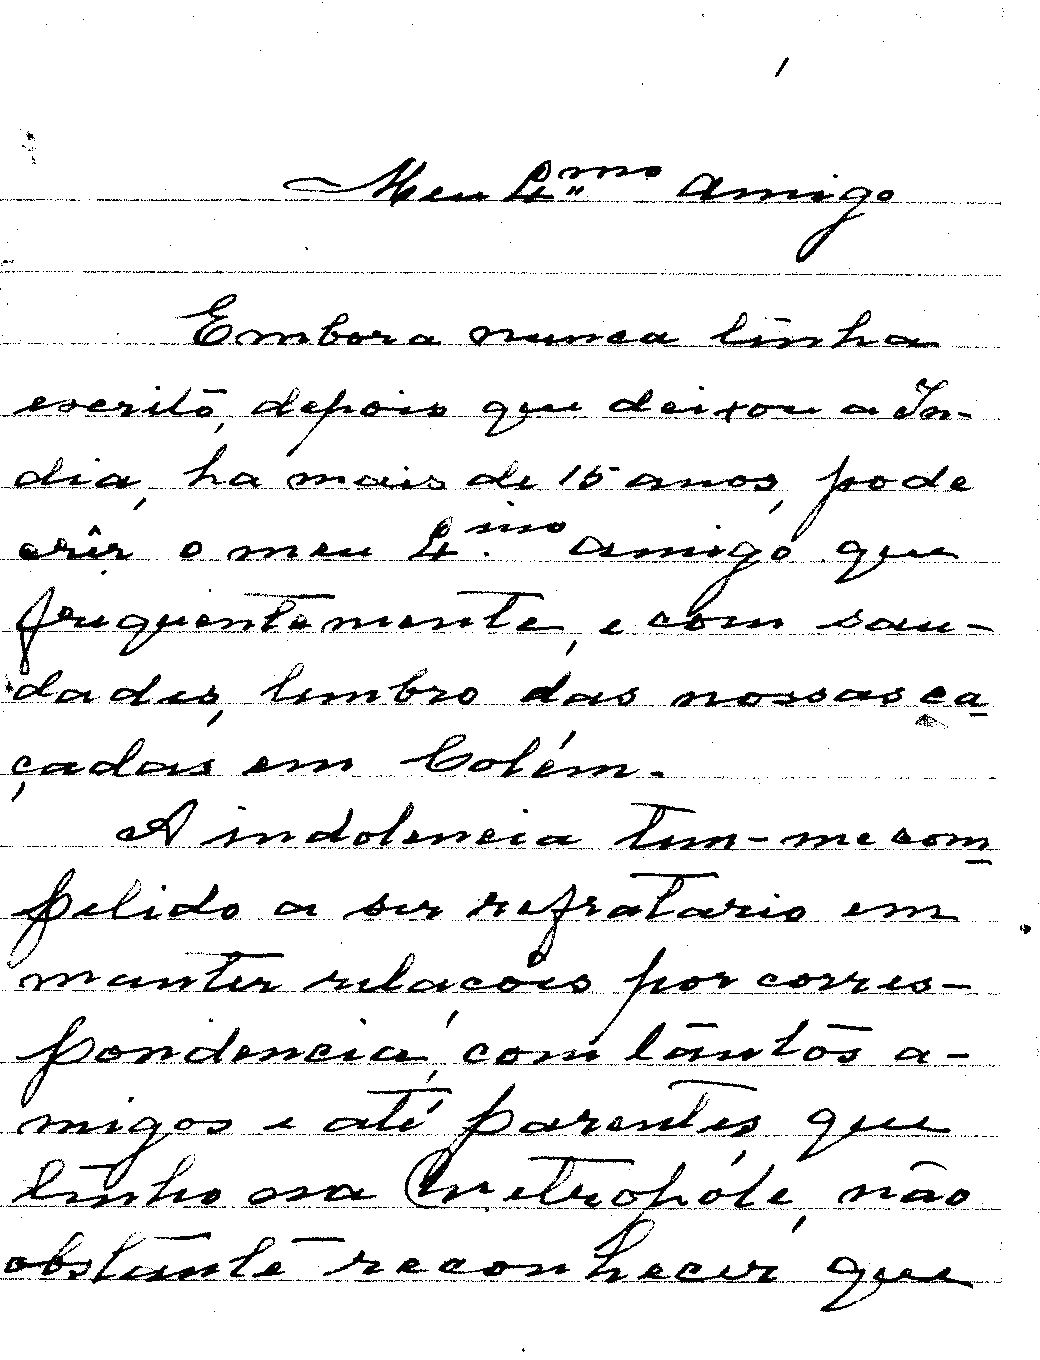 Meu Exmo amigo
Embora nunca tinha
escrito, depois que deixou a In-
dia, ha mais de 15 anos, pode
crêr o meu Exmo amigo que
frequentemente, e com sau-
dades, lembro das nossas ca
çadas em Colém.
A indolencia tem-me com
pelido a ser refratario em
manter relações por corres-
pondencia, com tantos a-
migos e até parentes, que
tinho na Metropóle, não
obstante reconhecer que